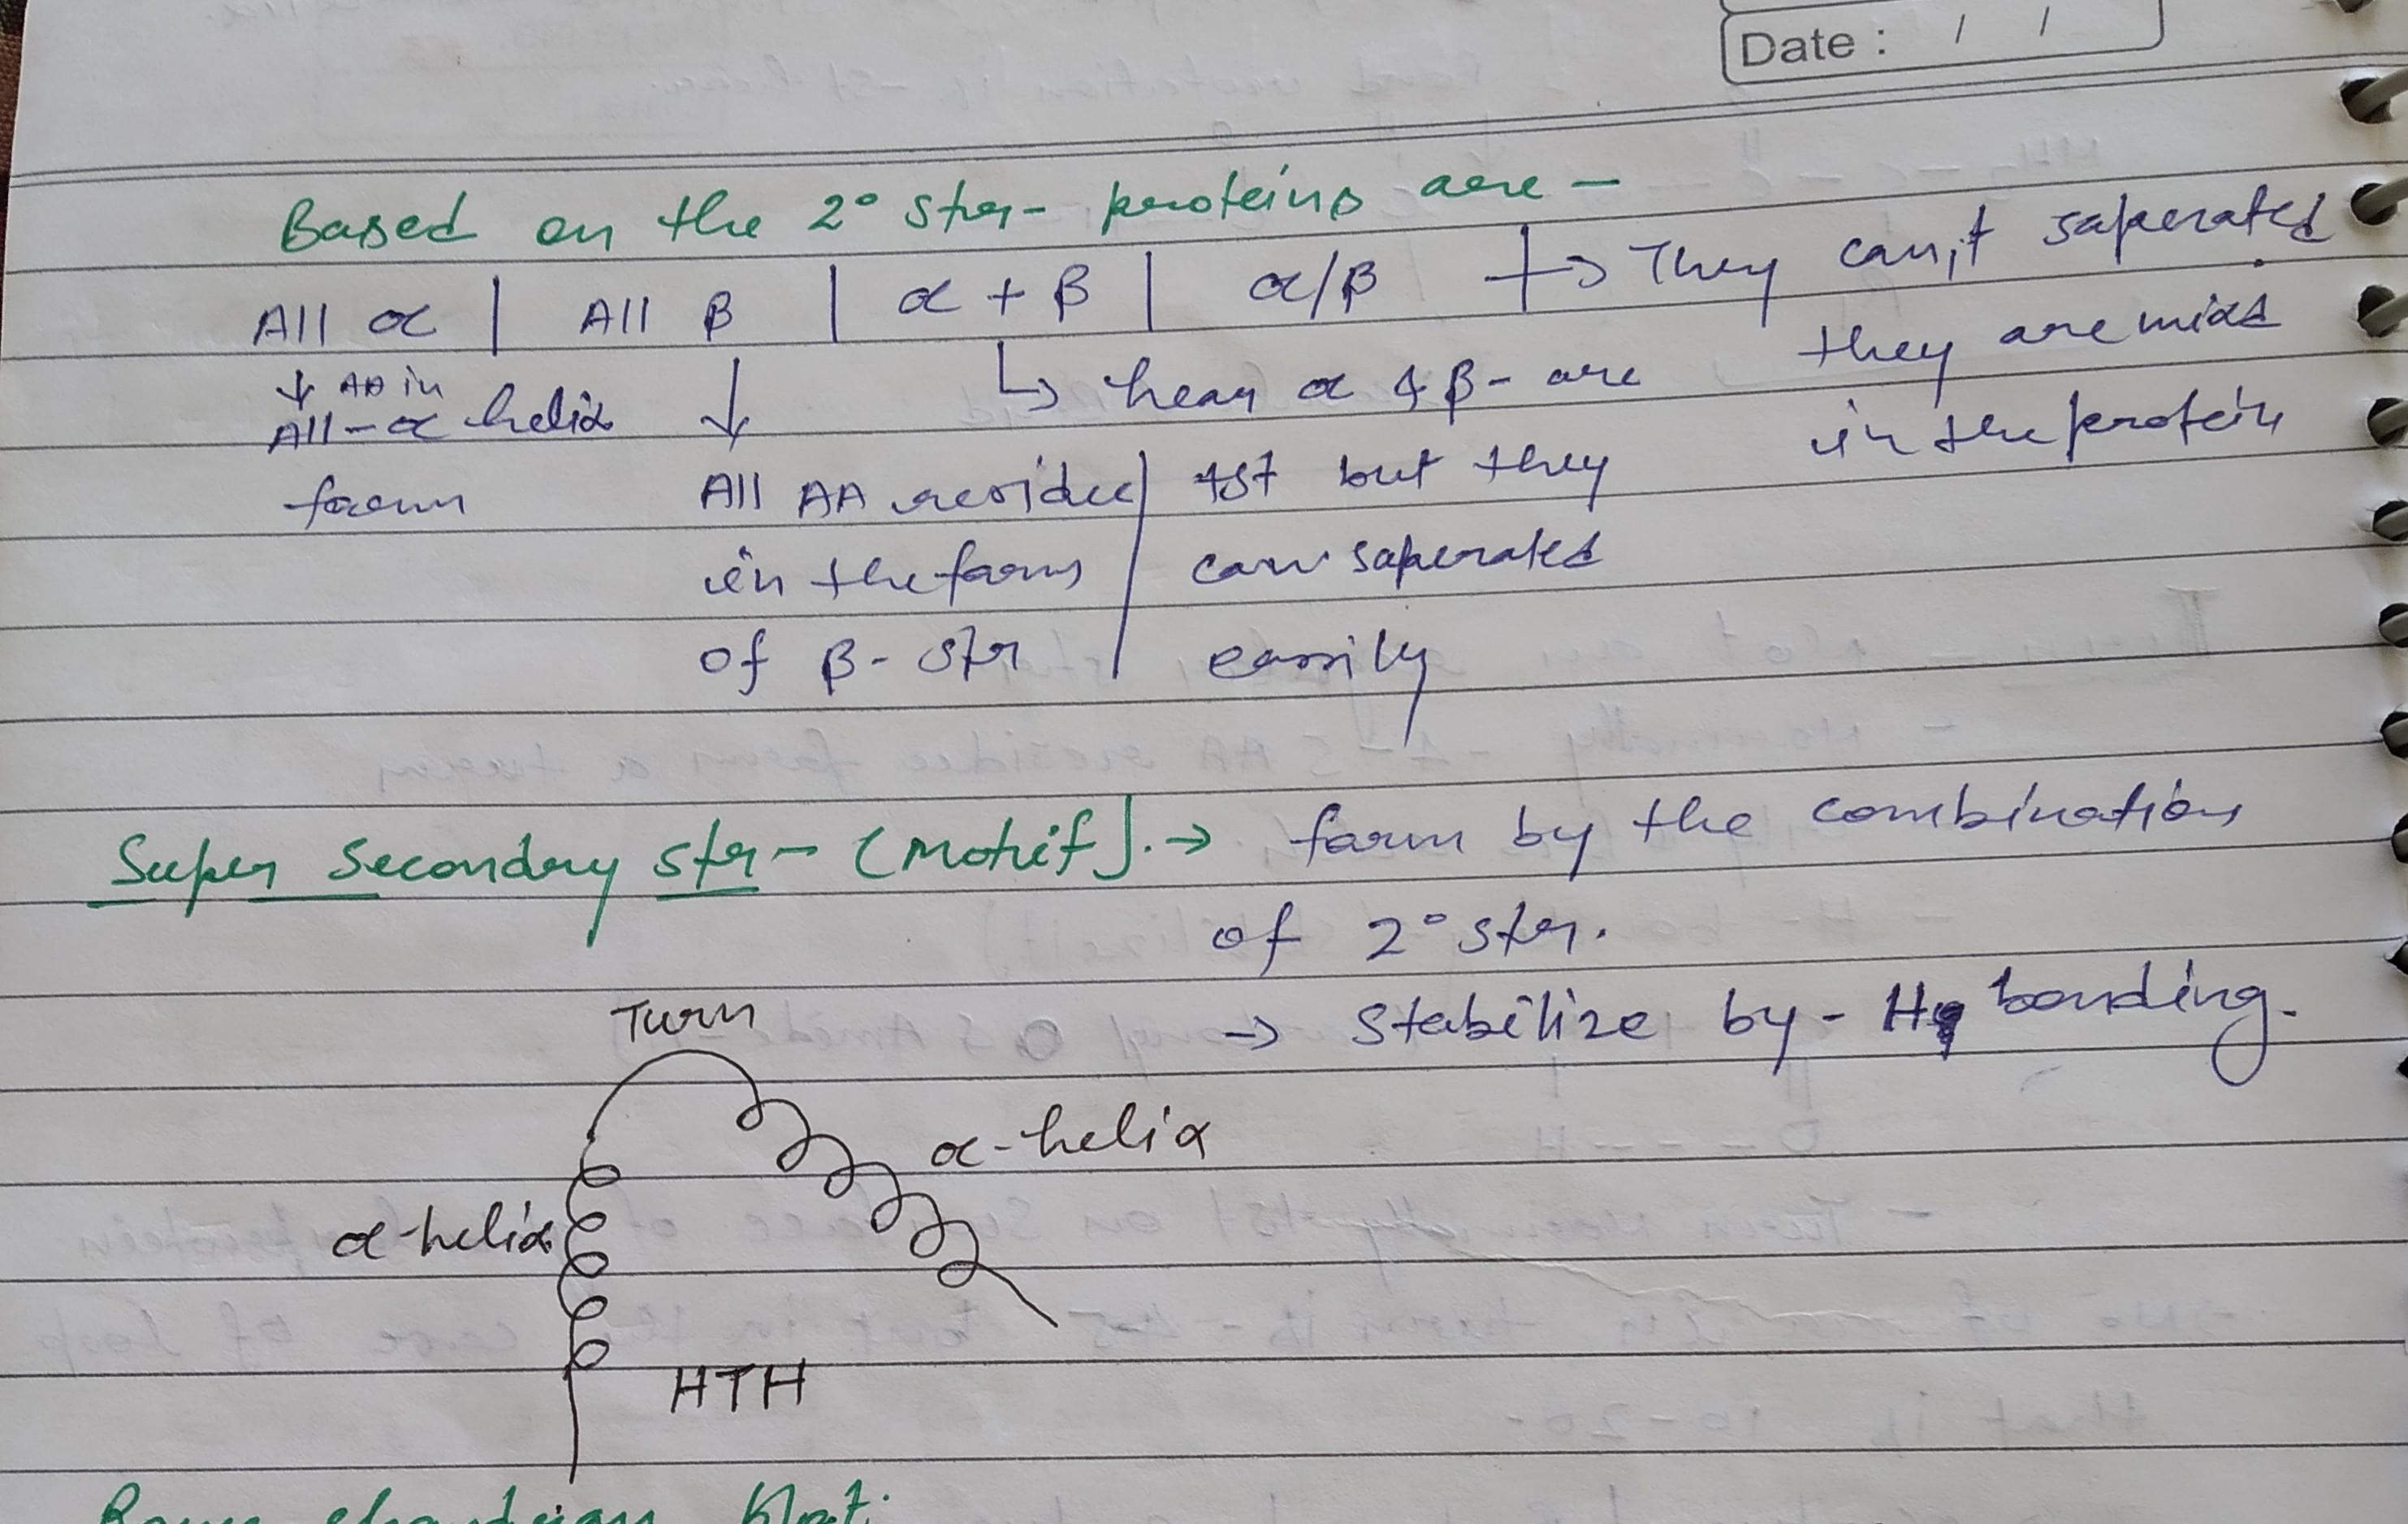 Date : / /
Based on the 2° str- proteins are –
All α | All β | α + β | α/β → They can't saperated
they are mixd
in the protein
↓ AA in
All - α helix
form
↓
All AA residue
in the form
of β- str
↳ hear α & β- are
1st but they
can saperated
easily
Super Secondry str- (Motif). → form by the combination
of 2° str.
→ Stabilize by - H bonding.
Turn
α-helix
α-helix
HTH
Plot: